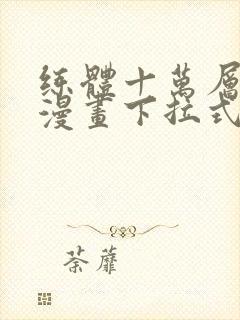 练體十萬層
漫畫下拉式
荼蘼